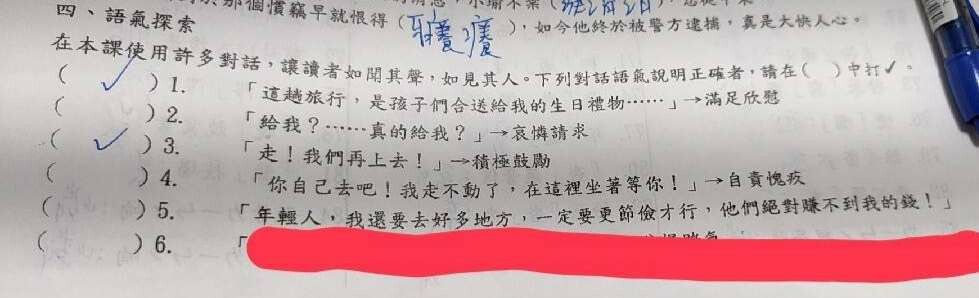 那個慣竊早就恨得(牙癢癢),如今他終於被警方逮捕,真是大快人心。
四、語氣探索
在本課使用許多對話,讓讀者如聞其聲,如見其人。下列對話語氣說明正確者,請在( )中打✓。
( ✓ )1. 「這趟旅行,是孩子們合送給我的生日禮物……」→滿足欣慰
( )2. 「給我?……真的給我?」→哀憐請求
( ✓ )3. 「走!我們再上去!」→積極鼓勵
( )4. 「你自己去吧!我走不動了,在這裡坐著等你!」→自責愧疚
( )5. 「年輕人,我還要去好多地方,一定要更節儉才行,他們絕對賺不到我的錢!」
( )6. 「